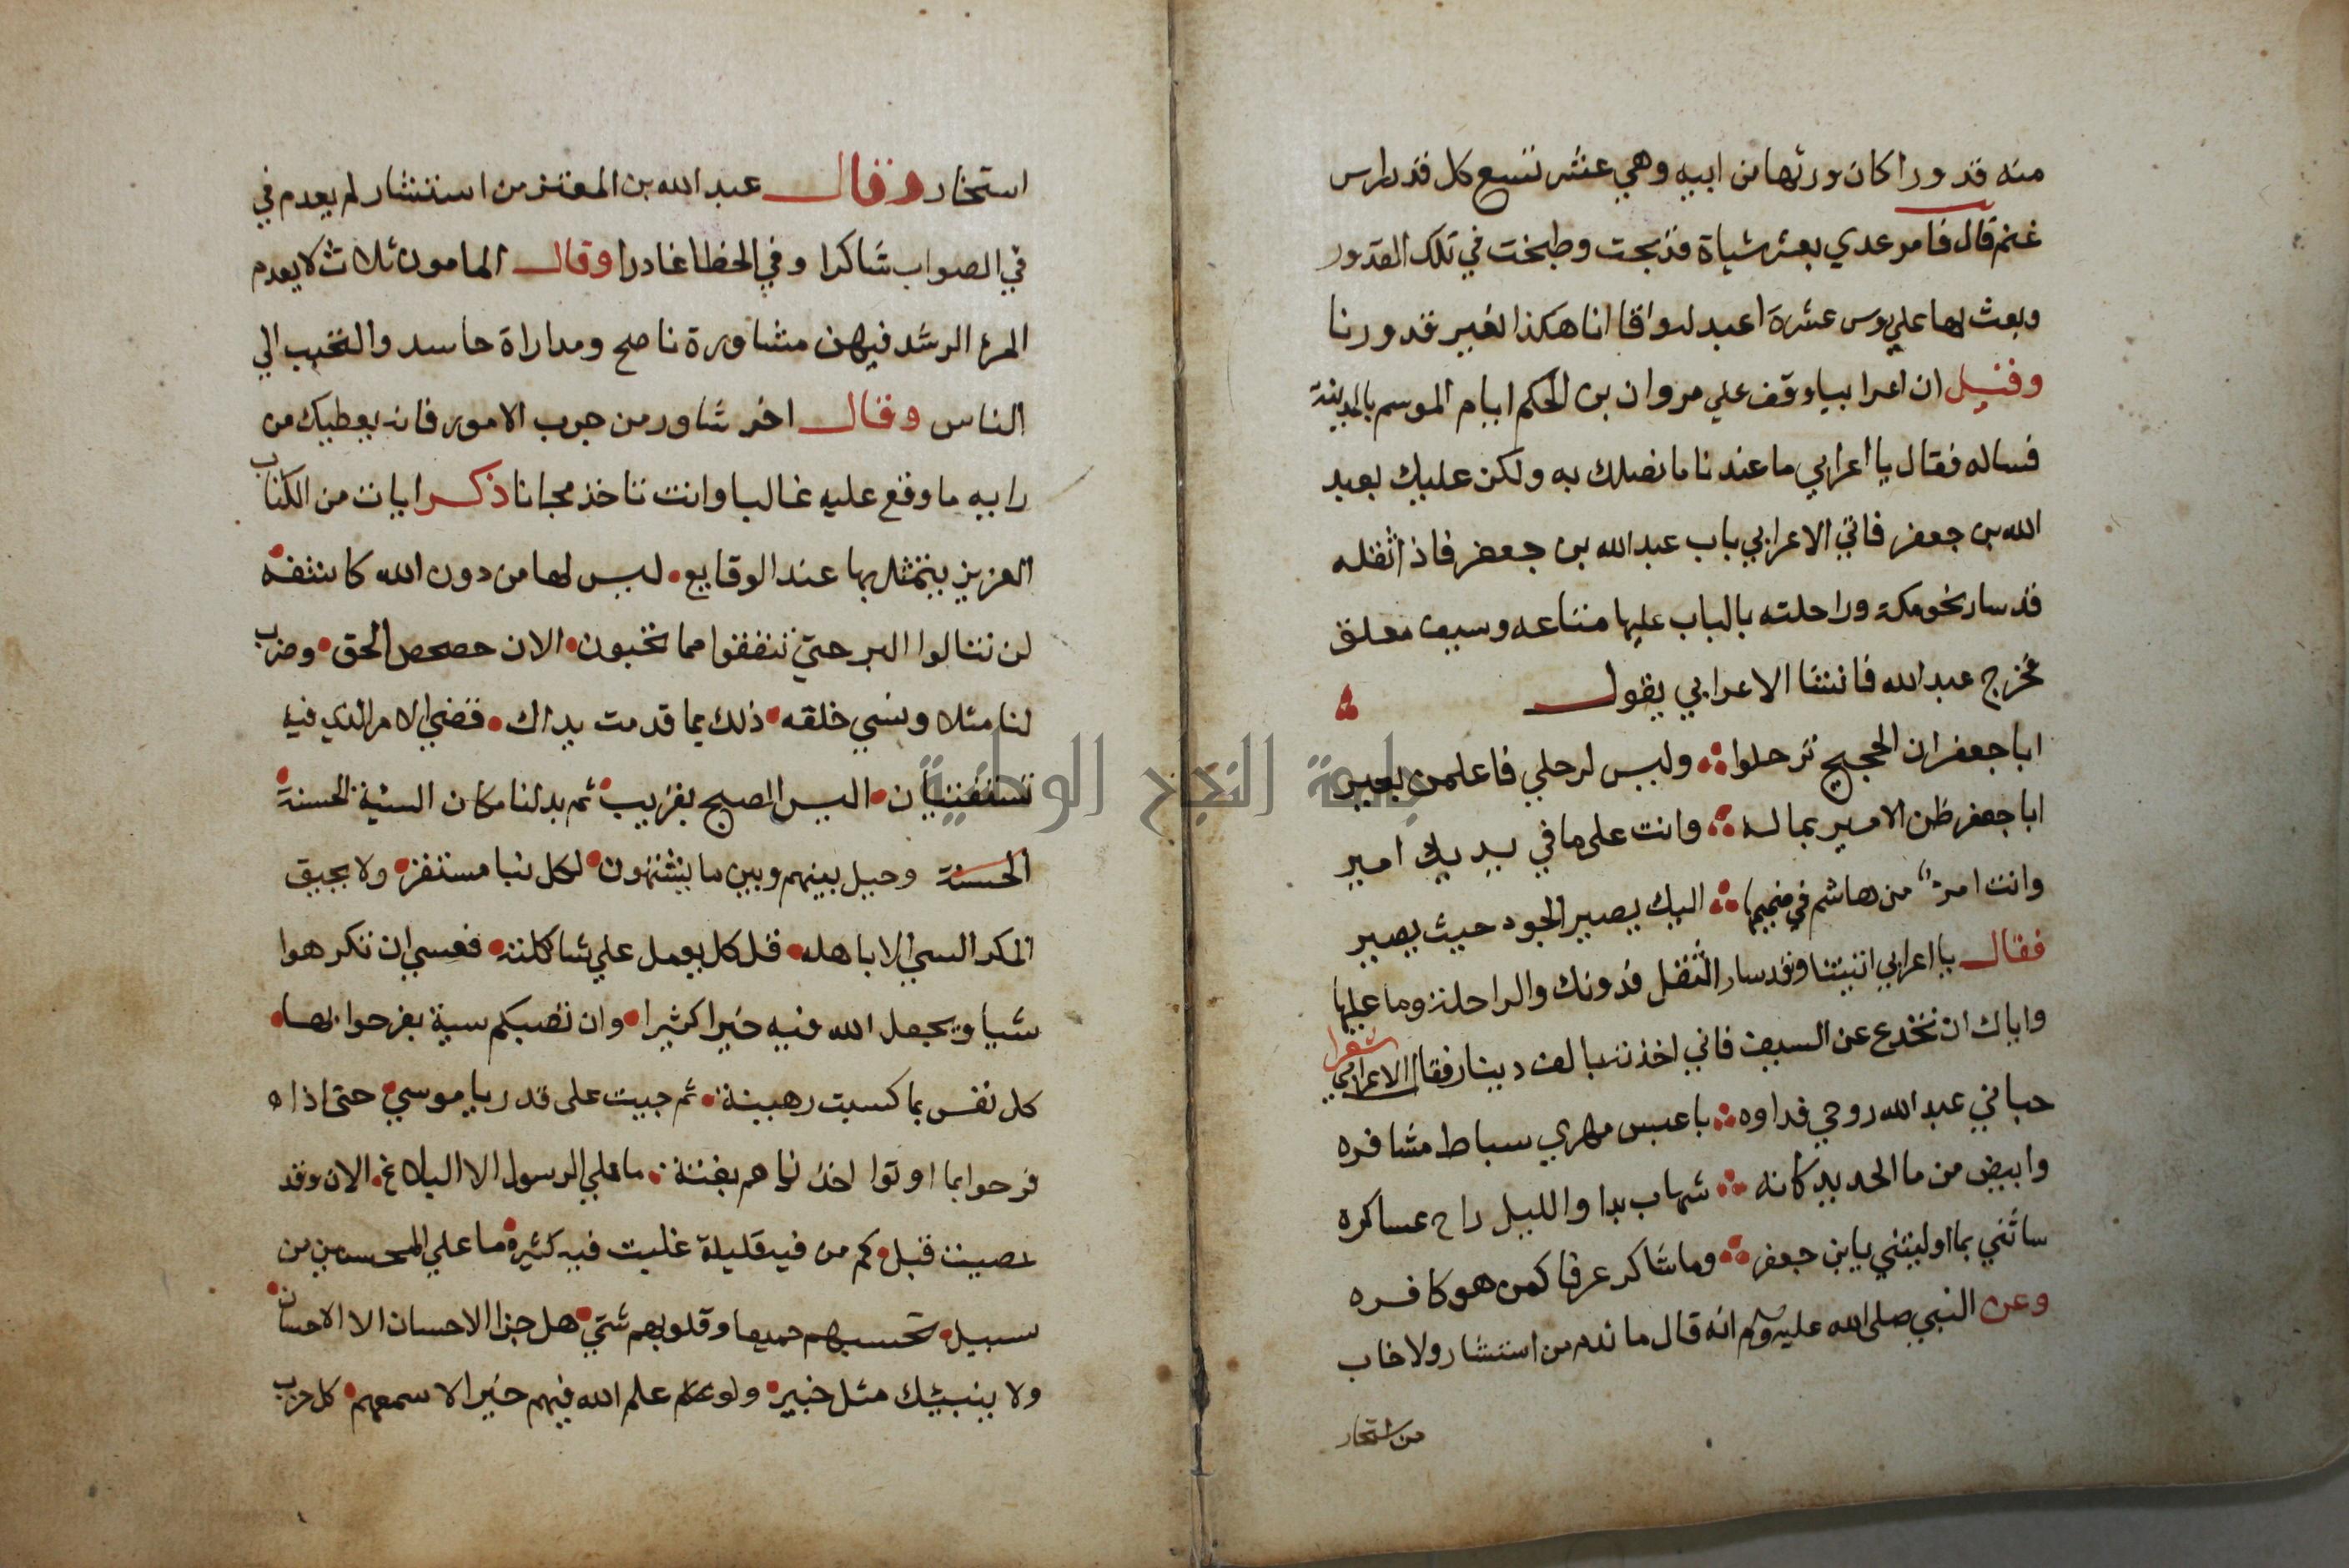 منه قدورا كان ورثها من ابيه وهي عشر تسع كل قدر راس
غنم قال فامر عدي بعشر شياة فذبحت وطبخت في تلك القدور
وبعث بها علي روس عشرة اعبد انا هكذا نعير قدورنا
وقيل ان اعرابيا وقف علي مروان بن الحكم ايام الموسم بالمدينة
فساله فقال يا اعرابي ما عندنا ما نصلك به ولكن عليك بعبد
الله بن جعفر فاتي الاعرابي باب عبد الله بن جعفر فاذا ثقله
قد سار نحو مكة وراحلته بالباب عليها متاعه وسيف معلق
فخرج عبد الله فانشا الاعرابي يقول
ابا جعفر ان الحجيج ترحلوا وليس لرحلي فاعلمن بعير
ابا جعفر ظن الامير بماله وانت على ما في يديك امير
وانت امرؤ من هاشم في صميمها اليك يصير الجود حيث يصير
فقال يا اعرابي اتيتنا وقد سار الثقل فدونك والراحلة وما عليها
واياك ان تخدع عن السيف فاني اخذته بالف دينار فقال الاعرابي شعرا
حباني عبد الله روحي فداوه باعيس مهري سباط مشافره
وابيض من ما الحديد كانه شهاب بدا والليل داج عساكره
ساثني بما اوليتني يا بن جعفر وما شاكر عرفا كمن هو كافره
وعن النبي صلى الله عليه وسلم انه قال ما ندم من استشار ولا خاب
من استخار
استخار وقال عبد الله بن المعتز من استشار لم يعدم في
في الصواب شاكرا وفي الخطا عاذرا وقال المامون ثلاث لا يعدم
المرء الرشد فيهن مشاورة ناصح ومداراة حاسد والتحبب الي
الناس وقال اخر شاور من جرب الامور فانه يعطيك من
رايه ما وقع عليه غاليا وانت تاخذ مجانا ذكر ايات من الكتاب
العزيز يتمثل بها عند الوقايع ليس لها من دون الله كاشفة
لن تنالوا البر حتي تنفقوا مما تحبون الان حصحص الحق وضرب
لنا مثلا ونسي خلقه ذلك بما قدمت يداك قضي الامر الذي فيه
تستفتيان اليس الصبح بقريب ثم بدلنا مكان السية الحسنة
الحسنة وحيل بينهم وبين ما يشتهون لكل نبا مستقر ولا يحيق
المكر السي الا باهله قل كل يعمل علي شاكلته فعسي ان تكرهوا
شيا ويجعل الله فيه خيرا كثيرا وان تصبكم سية يفرحوا بها
كل نفس بما كسبت رهينة ثم جيت على قدر يا موسي حتى اذا
فرحوا بما اوتوا اخذناهم بغتة ما علي الرسول الا البلاغ الان وقد
عصيت قبل كم من فية قليلة غلبت فية كثيرة ما علي المحسنين من
سبيل تحسبهم جميعا وقلوبهم شتي هل جزا الاحسان الا الاحسان
ولا ينبئك مثل خبير ولو علم الله فيهم خيرا لاسمعهم كل حزب